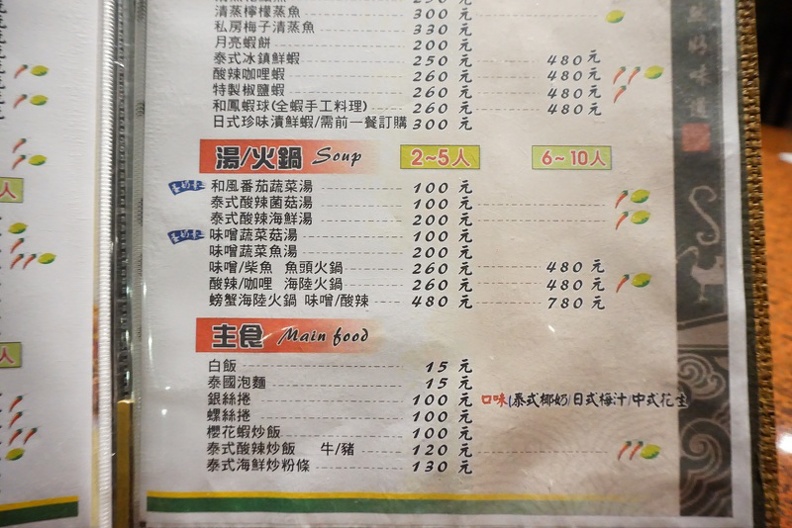 清蒸檸檬蒸魚 300元
私房梅子清蒸魚 330元
月亮蝦餅 200元
泰式冰鎮鮮蝦 250元 480元
酸辣咖哩蝦 260元 480元
特製椒鹽蝦 260元 480元
和鳳蝦球(全蝦手工料理) 260元 480元
日式珍味漬鮮蝦/需前一餐訂購 300元
湯/火鍋 Soup 2~5人 6~10人
和風番茄蔬菜湯 100元
泰式酸辣菌菇湯 100元
泰式酸辣海鮮湯 200元
味噌蔬菜菇湯 100元
味噌蔬菜魚湯 200元
味噌/柴魚 魚頭火鍋 260元 480元
酸辣/咖哩 海陸火鍋 260元 480元
螃蟹海陸火鍋 味噌/酸辣 480元 780元
主食 Main food
白飯 15元
泰國泡麵 15元
銀絲捲 100元 口味(泰式椰奶/日式梅汁/中式花生
螺絲捲 100元
櫻花蝦炒飯 100元
泰式酸辣炒飯 牛/豬 120元
泰式海鮮炒粉條 130元
人
人